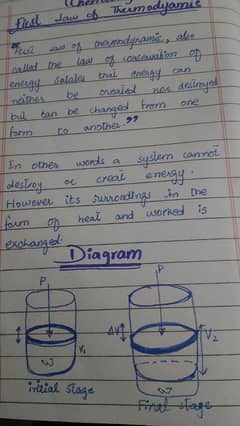 (Chemis
First law of Thermodyamic
"First law of thermodynamic, also
called the law of concavation of
energy salates that energy can
neither be created nor destroyed
but can be changed from one
form to another."
In other words a system cannot
destroy or creat energy.
However its surrondings in the
form of heat and worked is
exchanged.
Diagram
P P
V₁ ΔV V₂
W W
initial stage Final stage